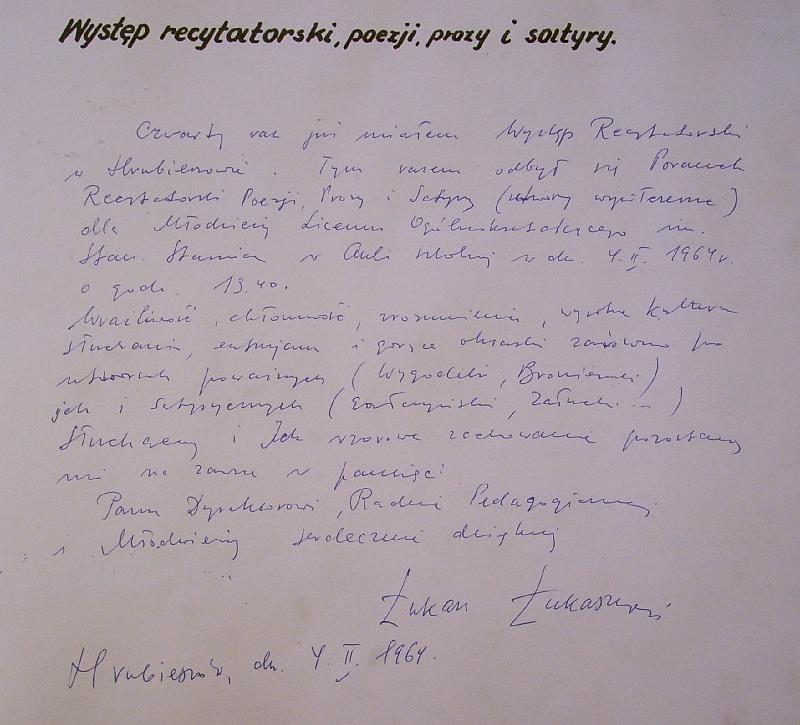 Występ recytatorski, poezji, prozy i satyry.
Czwarty raz już miałem Występ Recytatorski
w Hrubieszowie. Tym razem odbył się Poranek
Recytatorski Poezji, Prozy i Satyry (utwory współczesne)
dla Młodzieży Liceum Ogólnokształcącego im.
Stan. Staszica w Auli szkolnej w dn. 4.II. 1964 r.
o godz. 13.40.
Wrażliwość, chłonność, zrozumienie, wysoka kultura
słuchania, entuzjazm i gorące oklaski zarówno po
utworach poważnych (Wygodzki, Broniewski)
jak i satyrycznych (Gałczyński, Załucki...)
Słuchaczy i Ich wzorowe zachowanie pozostaną
mi na zawsze w pamięci
Panu Dyrektorowi, Radzie Pedagogicznej
i Młodzieży serdecznie dziękuję
Łukasz Łukaszewicz
Hrubieszów, dn. 4.II.1964.